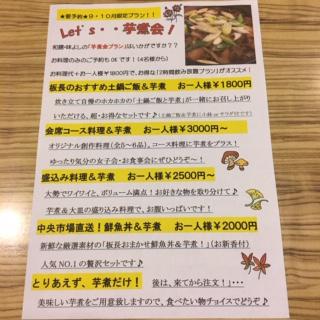 ★要予約★9・10月限定プラン！！
Let's・・芋煮会！
和膳・味よしの「芋煮会プラン」はいかがですか？？
お料理のみのご予約もOKです！（4名様から）
お料理代＋お一人様￥1800円で、お得な「2時間飲み放題プラン」がオススメ！
板長のおすすめ土鍋ご飯＆芋煮　お一人様￥1800円
炊き立て自慢のホカホカの「土鍋ご飯と芋煮」が一緒にお召し上がり
いただける、超・お得なセットです♪
会席コース料理＆芋煮　お一人様￥3000円～
オリジナル創作料理（全5～6品）、コース料理に芋煮をプラス！
ゆったり気分の女子会・お食事会にぜひどうぞ～！
盛込み料理＆芋煮　お一人様￥2500円～
大勢でワイワイと、ボリューム満点！お好きな物を取り分けて♪
芋煮＆大皿の盛り込み料理で、お腹いっぱいです！
中央市場直送！鮮魚丼＆芋煮　お一人様￥2000円
新鮮な厳選素材の「板長おまかせ鮮魚丼＆芋煮！」（お新香付）
人気NO.1の贅沢セットです♪
とりあえず、芋煮だけ！　後は、来てから注文！・・・
美味しい芋煮をご用意致しますので、食べたい物チョイスでどうぞ♪